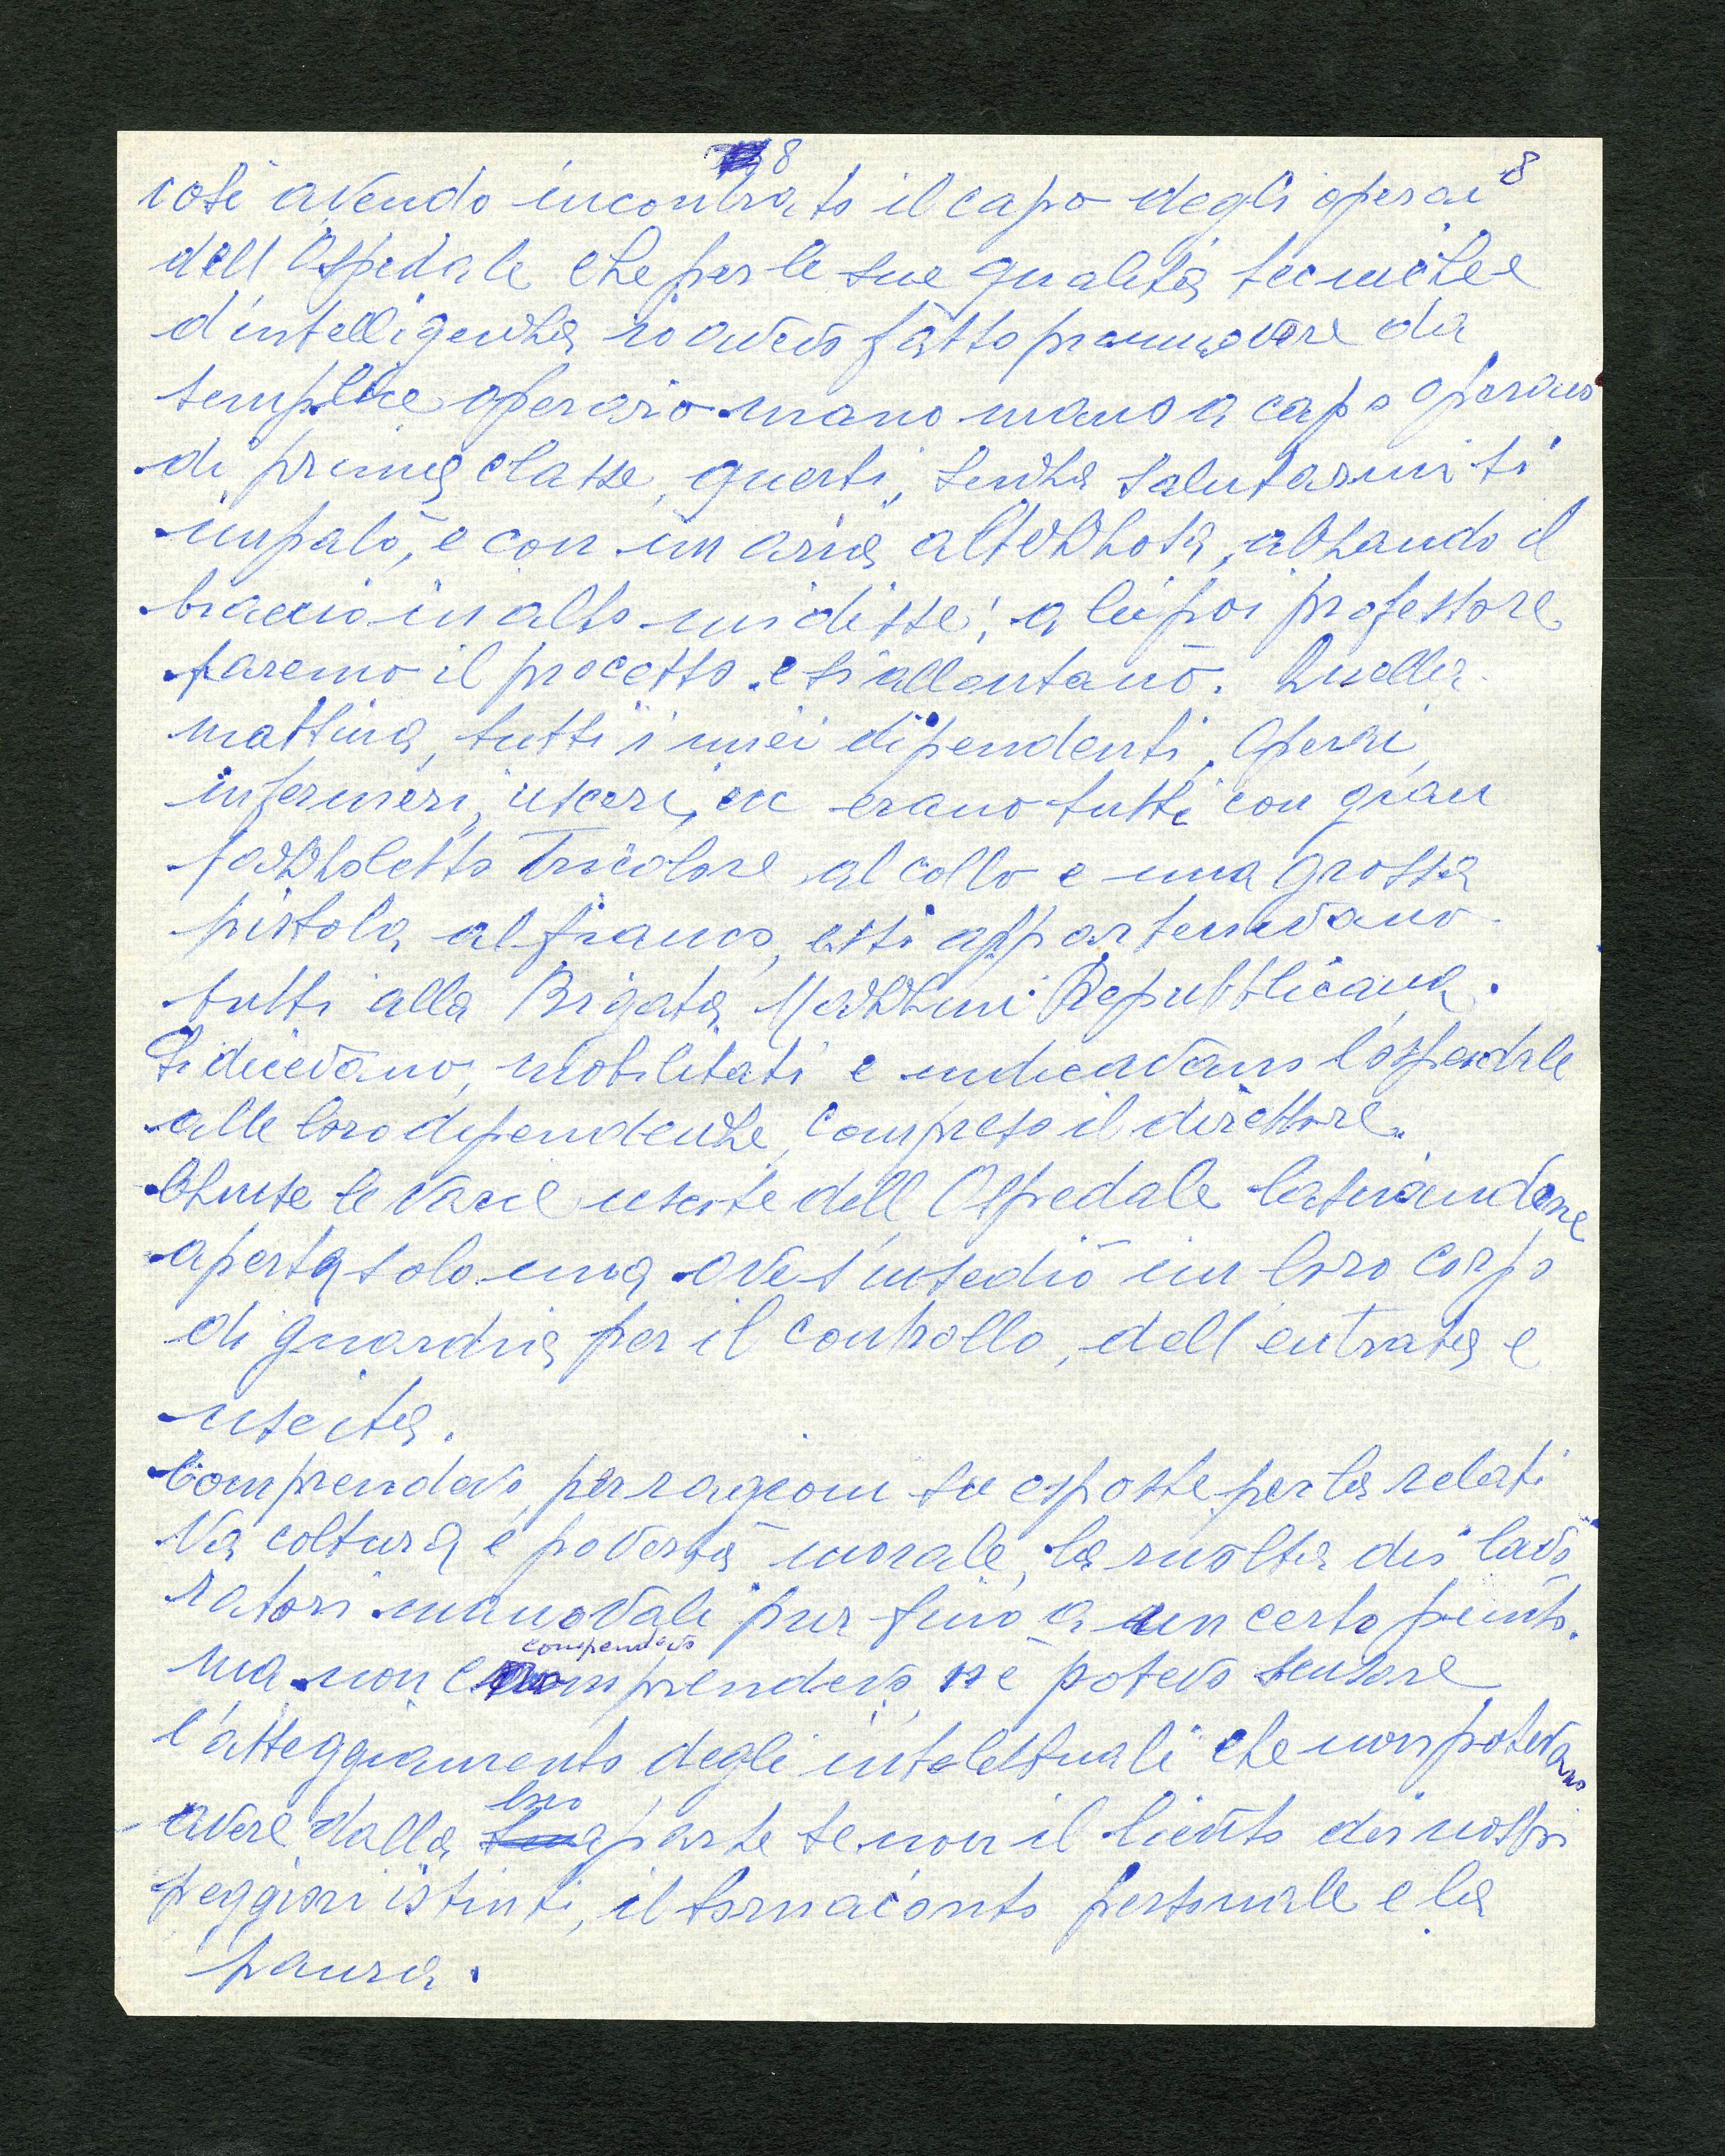 8 8
così avendo incontrato il capo degli operai
dell'Ospedale che per le sue qualità tecniche e
d'intelligenza io avevo fatto promuovere da
semplice operaio mano mano a capo operaio
di prima classe, questi, senza salutarmi si
impalò, e con un aria altezzosa, alzando il
braccio in alto mi disse: a lei poi professore
faremo il processo e si allontanò. Quella
mattina, tutti i miei dipendenti, operai,
infermieri, uscieri, ecc erano tutti con gran
fazzoletto Tricolore al collo e una grossa
pistola al fianco, essi appartenevano
tutti alla Brigata Mazzini Repubblicana.
Si dicevano, mobilitati e indicavano l'ospedale
alle loro dipendenze, compreso il direttore.
Chiuse le varie uscite dell'Ospedale lasciandone
aperta solo una ove s'insediò un loro corpo
di guardia per il controllo, dell'entrata e
uscita.
Comprendevo, per ragioni su esposte per la relati
va coltura e povertà morale, la rivolta dei lavo
ratori manovali pur fino a un certo punto.
comprendevo
ma non comprendevo, ne potevo scusare
l'atteggiamento degli intelettuali che non potevano
loro
avere dalla sua parte se non il lievito dei nostri
peggiori istinti, il tornaconto personale e la
paura.